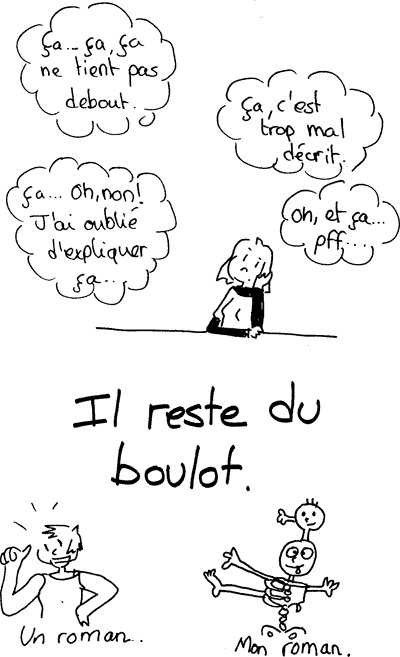 ça... ça, ça
ne tient pas
debout.
ça, c'est
trop mal
décrit.
ça... Oh, non!
J'ai oublié
d'expliquer
ça...
Oh, et ça...
pff...
Il reste du
boulot.
Un roman..
Mon roman.